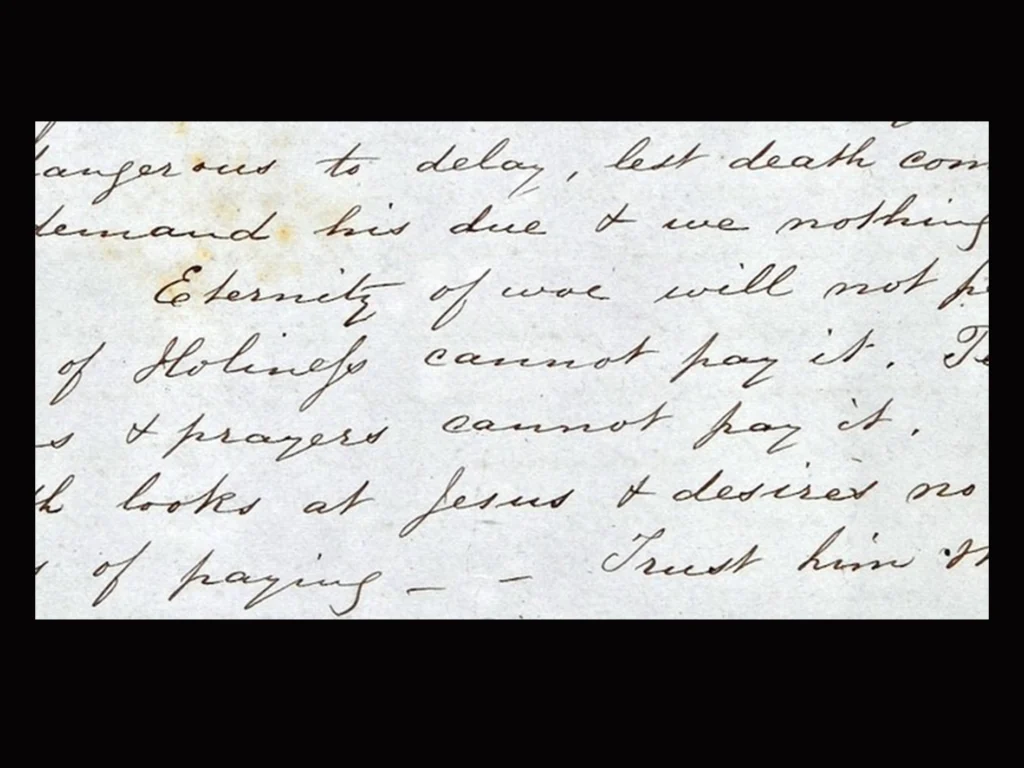 dangerous to delay, lest death com
demand his due & we nothing
Eternity of woe will not p
of Holiness cannot pay it. Te
s & prayers cannot pay it.
th looks at Jesus & desires no
s of paying _ _ Trust him